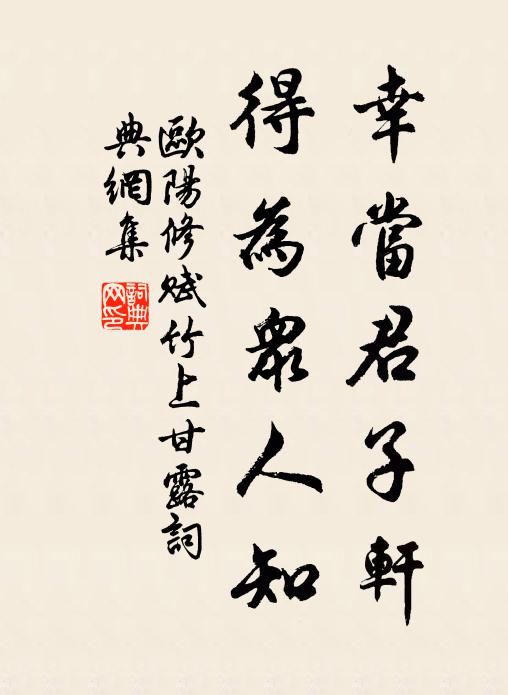 幸當君子軒
得為眾人知
歐陽修賦竹上甘露詞
典網集
詞典網印